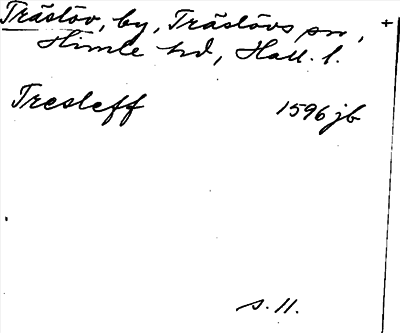 Träslöv, by, Träslövs sn, +
Himle hd, Hall. l.
Tresleff 1596 jb
s. 11.